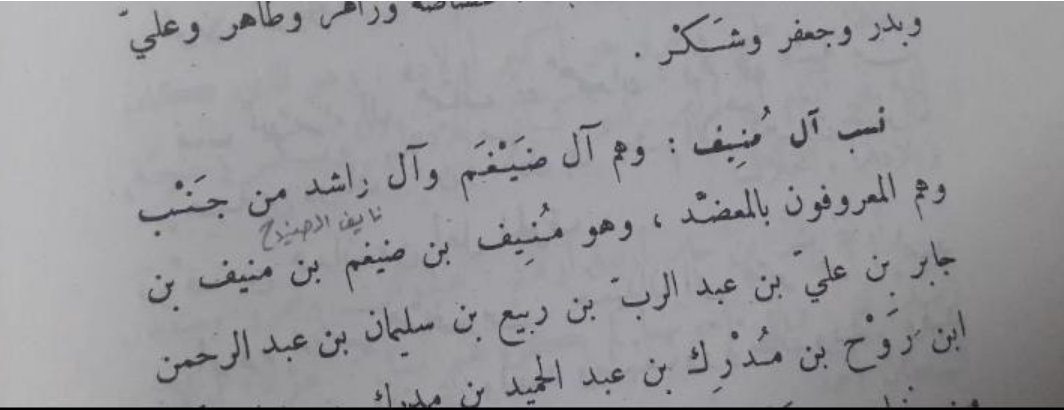 وزاهر وطاهر وعليّ
وبدر وجعفر وشَكْر .
نسب آل مُنِيف : وهم آل ضَيْغَم وآل راشد من جَنْب
وهم المعروفون بالمعضّد ، وهو مُنِيف بن ضيغم بن منيف بن
نايف الصنيدح
جابر بن عليّ بن عبد الربّ بن ربيع بن سليمان بن عبد الرحمن
ابن رَوْح بن مُدْرِك بن عبد الحميد بن مدرك